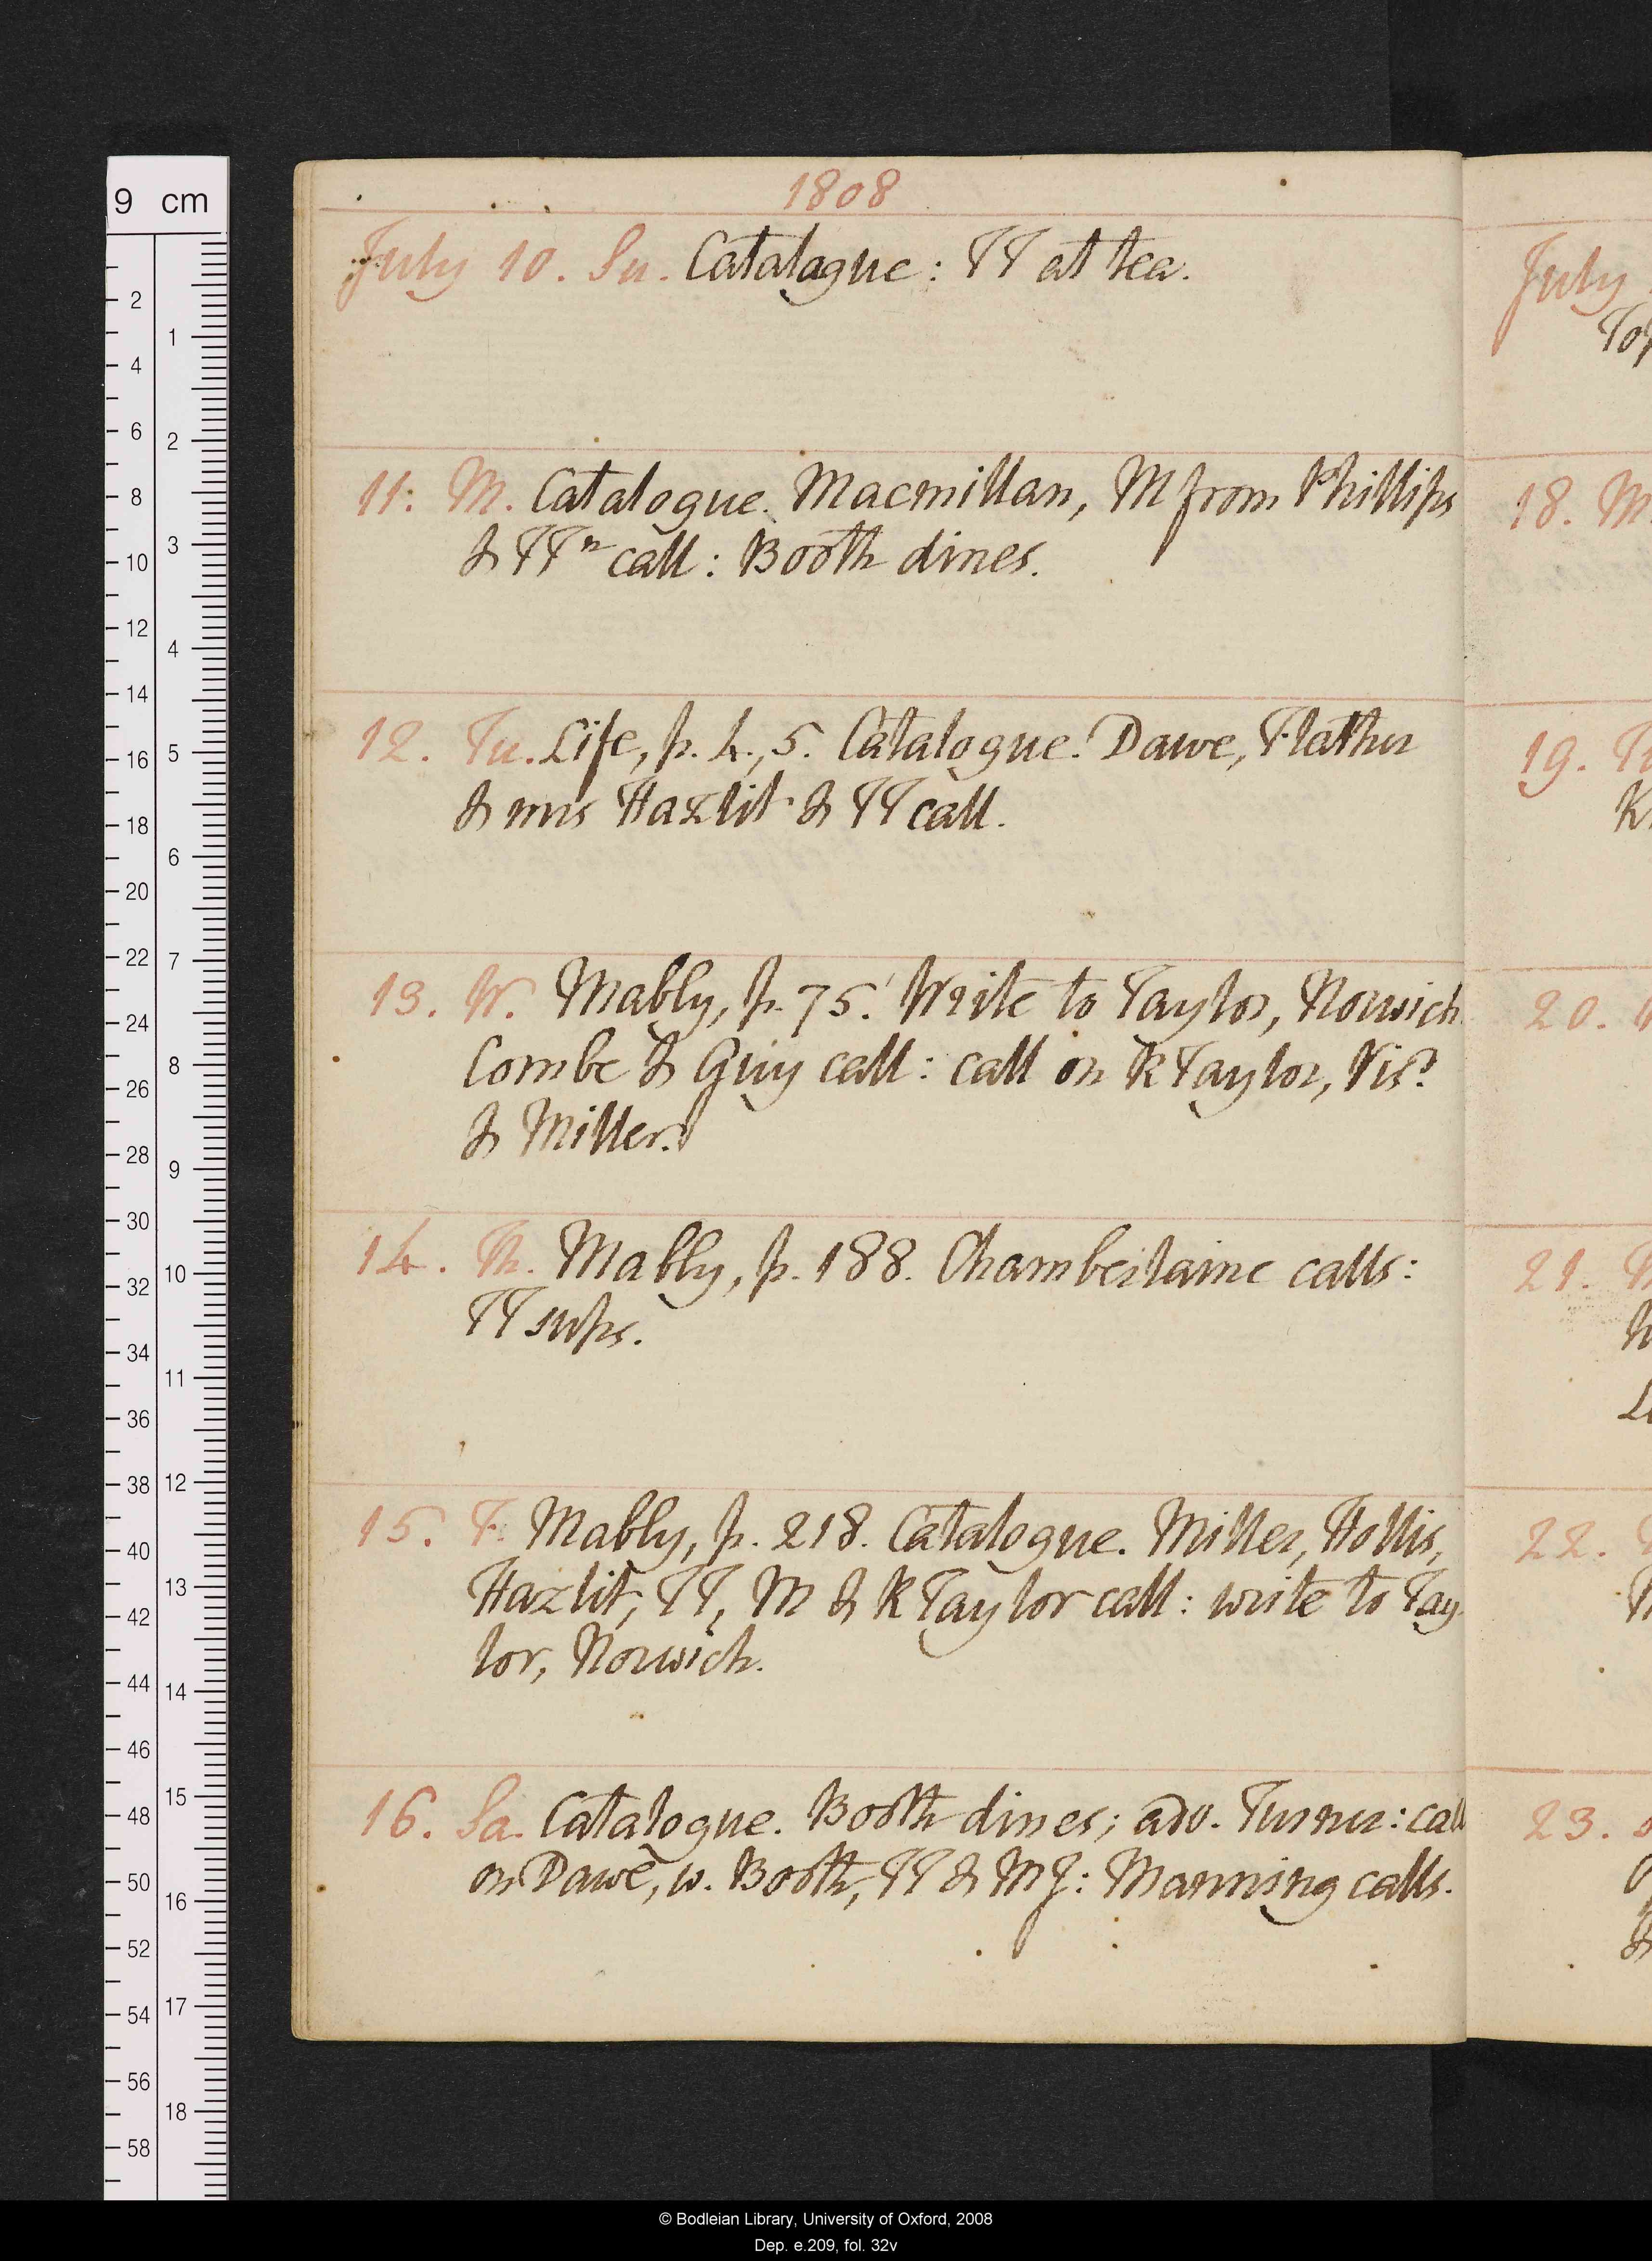 1808
July 10. Su. Catalogue: TT at tea.
11. M. Catalogue. Macmillan, M from Phillips
& TTn call: Booth dines.
12. Tu. Life, p. 4, 5. Catalogue. Dawe, Flather
& mrs Hazlit & TT call.
13. W. Mably, p. 75. Write to Taylor, Norwich.
Combe & Guy call: call on R Taylor, Vis?
& Miller.
14. Th. Mably, p. 188. Chamberlaine calls:
TT sups.
15. F. Mably, p. 218. Catalogue. Miller, Hollis,
Hazlit, TT, M & R Taylor call: write to Tay
lor, Norwich.
16. Sa. Catalogue. Booth dines; adv. Turner: call
on Dawe, w. Booth, TT & MJ: Manning calls.
July
18. M
19. T
20.
21.
22.
23.
9 cm
2
4
6
8
10
12
14
16
18
20
22
24
26
28
30
32
34
36
38
40
42
44
46
48
50
52
54
56
58
1
2
3
4
5
6
7
8
9
10
11
12
13
14
15
16
17
18
© Bodleian Library, University of Oxford, 2008
Dep. e.209, fol. 32v